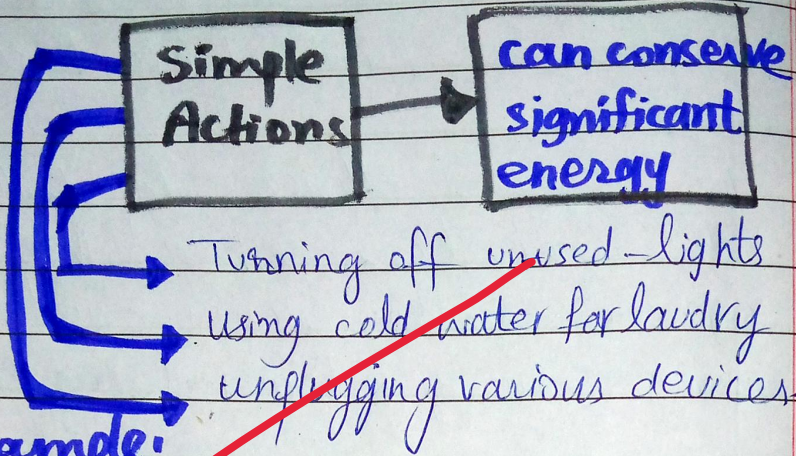 Simple
Actions
can conserve
significant
energy
Turning off unused-lights
using cold water for laudry
unplugging various devices